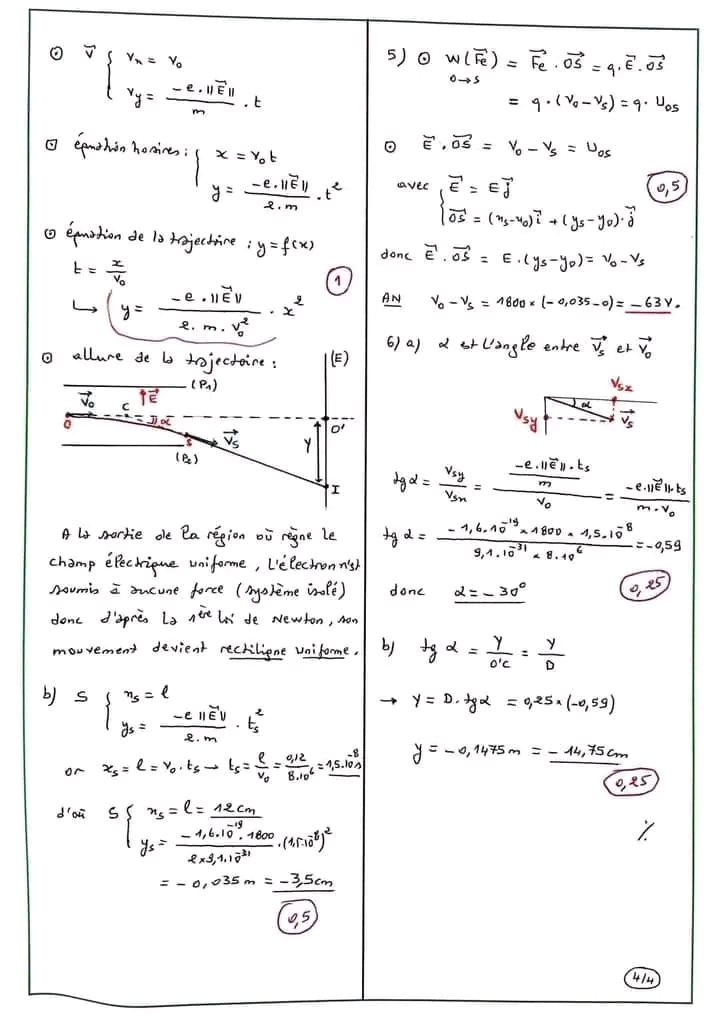 ⊙ V⃗ { Vx = V₀
Vy = -e.||E⃗||/m . t
⊙ équation horaires : { x = V₀t
y = -e.||E⃗||/2.m . t²
⊙ équation de la trajectoire : y = f(x)
t = x/V₀
↳ y = -e.||E⃗||/2.m.V₀² . x²
1
⊙ allure de la trajectoire :
(E)
(P₁)
V₀⃗
E⃗
O
C
α
O'
S
V⃗s
Y
(P₂)
I
A la sortie de la région où règne le
champ électrique uniforme, L'électron n'est
soumis à aucune force (système isolé)
donc d'après la 1ère loi de Newton, son
mouvement devient rectiligne uniforme.
b) S { xs = l
ys = -e||E⃗||/2.m . ts²
or xs = l = V₀.ts → ts = l/V₀ = 0,12/8.10⁶ = 1,5.10⁻⁸s
d'où S { xs = l = 12cm
ys = -1,6.10⁻¹⁹.1800/2×9,1.10⁻³¹ .(1,5.10⁻⁸)²
= -0,035m = -3,5cm
0,5
5) ⊙ W(F⃗e) O→S = F⃗e.OS⃗ = q.E⃗.OS⃗
= q.(V₀-Vs) = q.Uos
⊙ E⃗.OS⃗ = V₀-Vs = Uos
avec { E⃗ = Ej⃗
0,5
OS⃗ = (xs-x₀)i⃗ + (ys-y₀).j⃗
donc E⃗.OS⃗ = E.(ys-y₀) = V₀-Vs
AN V₀-Vs = 1800×(-0,035-0) = -63V.
6) a) α est L'angle entre V⃗s et V⃗₀
Vsx
α
Vsy
V⃗s
tgα = Vsy/Vsx = (-e.||E⃗||.ts/m)/V₀ = -e.||E⃗||.ts/m.V₀
tgα = -1,6.10⁻¹⁹×1800×1,5.10⁻⁸/9,1.10⁻³¹×8.10⁶ = -0,59
donc α = -30°
0,25
b) tgα = Y/O'C = Y/D
→ Y = D.tgα = 0,25×(-0,59)
Y = -0,1475m = -14,75cm
0,25
·/.
4/4